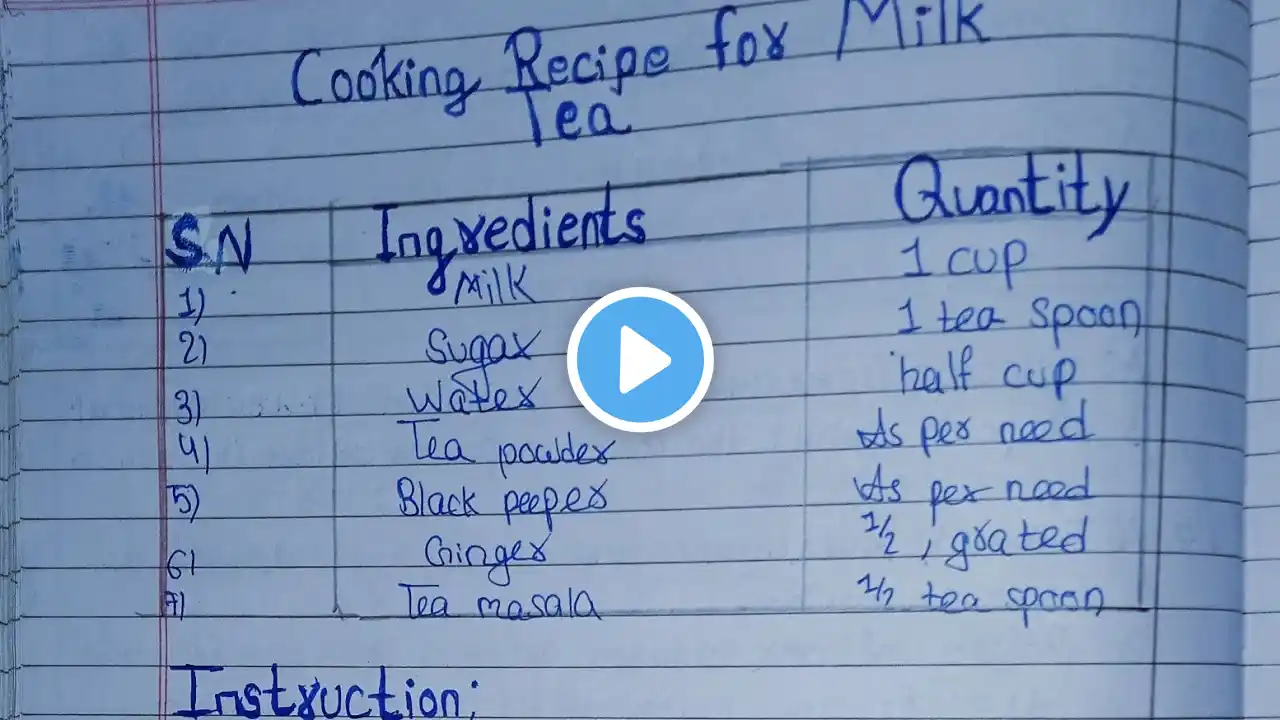 Cooking Recipe for Milk
Tea
S.N Ingredients Quantity
1) Milk 1 cup
2) Sugar 1 tea spoon
3) Water half cup
4) Tea powder As per need
5) Black peeper As per need
6) Ginger 1/2, grated
7) Tea masala 1/2 tea spoon
Instruction: